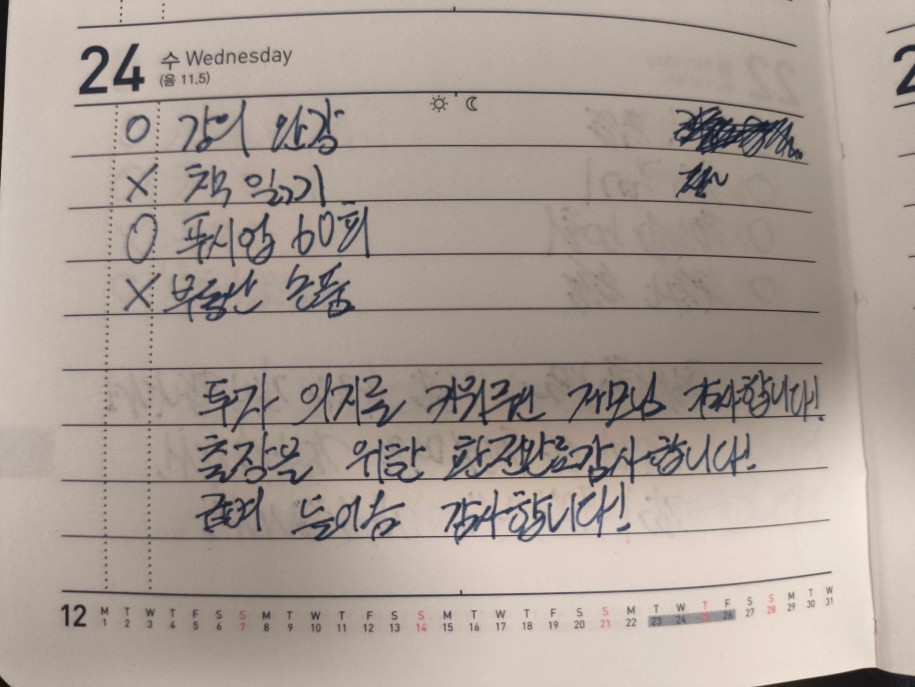 24 수 Wednesday
(음 11.5)
O 강의 수강
X 책 읽기
O 푸시업 60회
X 부동산 손품
투자 의지를 장모님 감사합니다!
출장을 위한 감사합니다!
급여 들어옴 감사합니다!
12 M T W T F S S M T W T F S S M T W T F S S M T W T F S S M T W
1 2 3 4 5 6 7 8 9 10 11 12 13 14 15 16 17 18 19 20 21 22 23 24 25 26 27 28 29 30 31